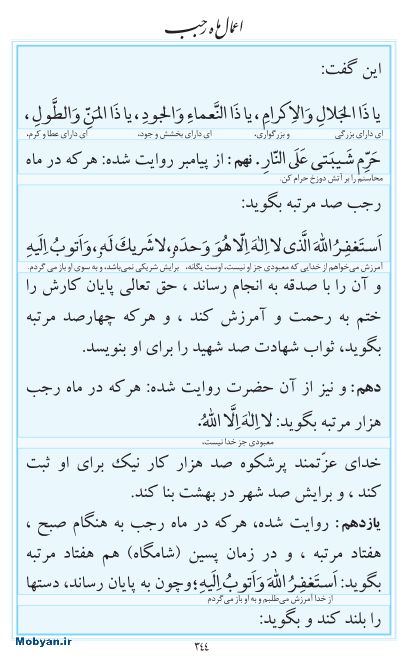 اعمال ماه رجب
این گفت:
یا ذَا الجَلالِ وَالاِکرامِ، یا ذَا النَّعماءِ وَالجودِ، یا ذَا المَنِّ وَالطَّولِ،
ای دارای بزرگی و بزرگواری، ای دارای بخشش و جود، ای دارای عطا و کرم،
حَرِّم شَیبَتی عَلَی النّارِ. نهم: از پیامبر روایت شده: هرکه در ماه
محاسنم را بر آتش دوزخ حرام کن.
رجب صد مرتبه بگوید:
اَستَغفِرُ اللهَ الَّذی لا اِلٰهَ اِلّا هُوَ وَحدَهٗ، لا شَریكَ لَهٗ، وَاَتوبُ اِلَیهِ
آمرزش می‌خواهم از خدایی که معبودی جز او نیست، اوست یگانه، برایش شریکی نمی‌باشد، و به سوی او باز می گردم.
و آن را با صدقه به انجام رساند ، حق تعالی پایان کارش را
ختم به رحمت و آمرزش کند ، و هرکه چهارصد مرتبه
بگوید، ثواب شهادت صد شهید را برای او بنویسد.
دهم: و نیز از آن حضرت روایت شده: هرکه در ماه رجب
هزار مرتبه بگوید: لا اِلٰهَ اِلَّا اللهُ.
معبودی جز خدا نیست،
خدای عزّتمند پرشکوه صد هزار کار نیک برای او ثبت
کند ، و برایش صد شهر در بهشت بنا کند.
یازدهم: روایت شده، هرکه در ماه رجب به هنگام صبح ،
هفتاد مرتبه ، و در زمان پسین (شامگاه) هم هفتاد مرتبه
بگوید: اَستَغفِرُ اللهَ وَاَتوبُ اِلَیهِ؛ وچون به پایان رساند، دستها
از خدا آمرزش می‌طلبم و به او باز می‌گردم
را بلند کند و بگوید:
۳۴۴
Mobyan.ir